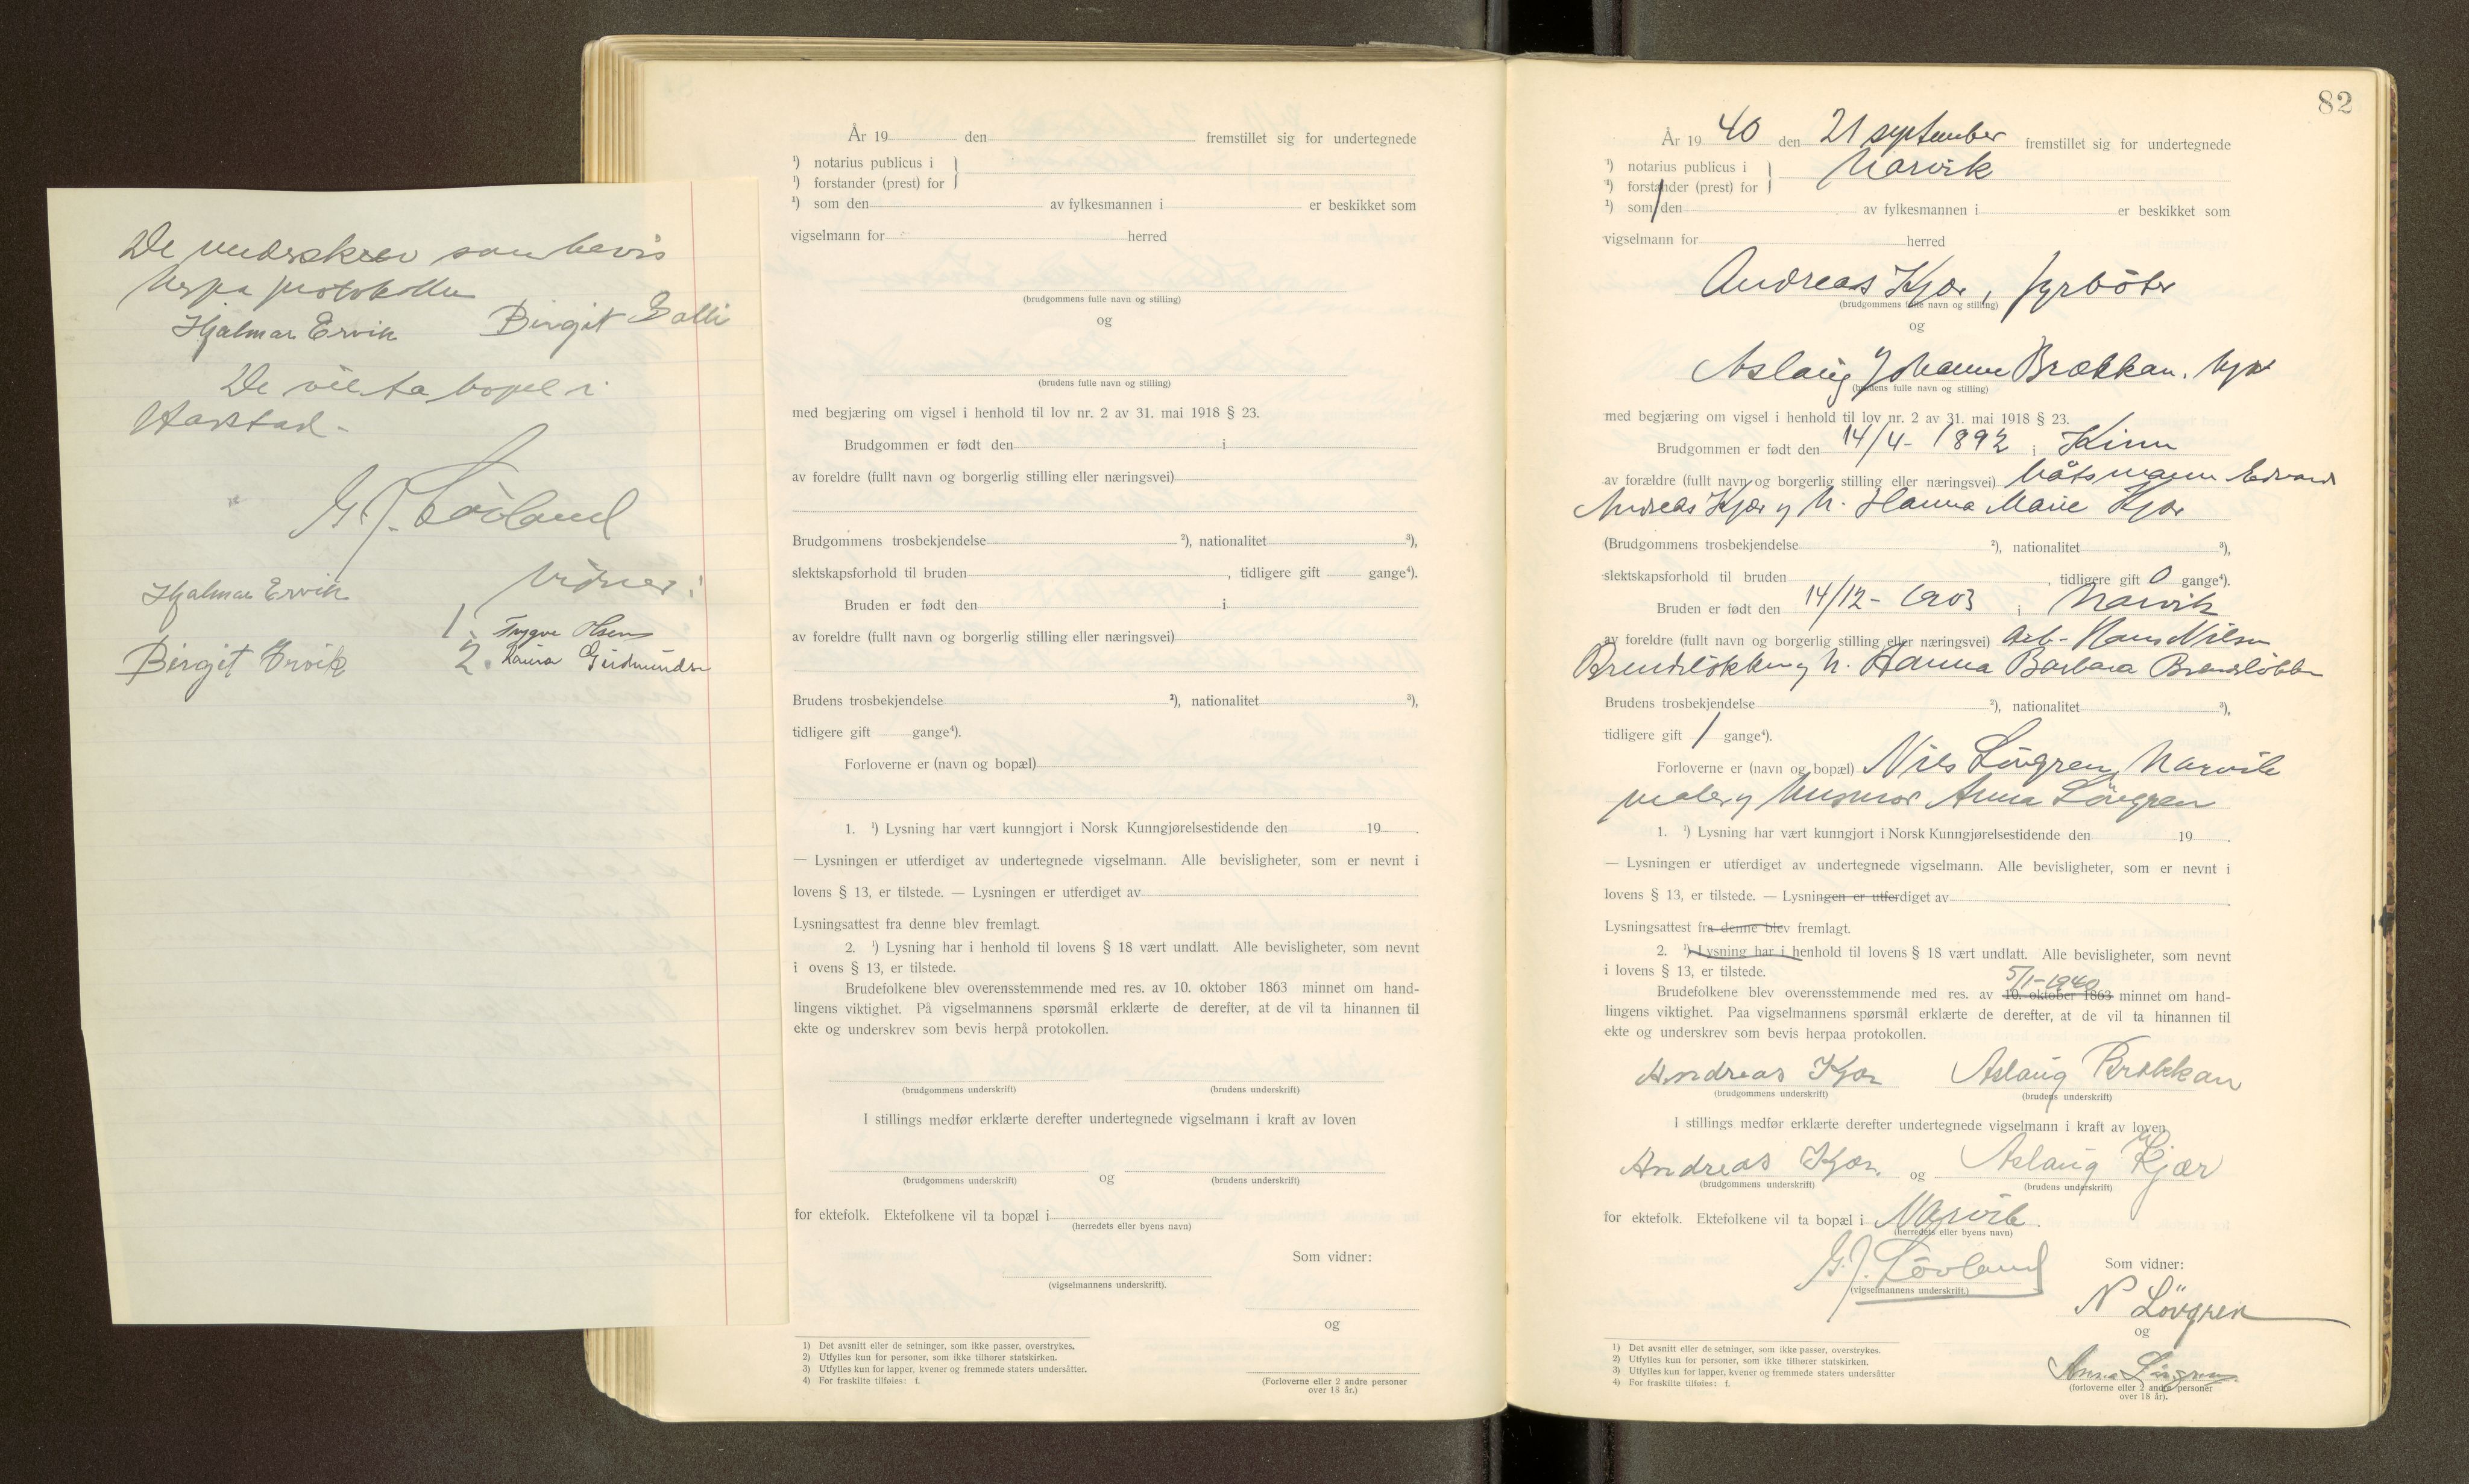 De underskrev som bevis
herpå protokollen
Hjalmar Ervik Birgit Galli
De vil ta bopel i
Harstad -
G. J. Lövland
Hjalmar Ervik
Vidner:
1. Trygve Olsen
Birgit Ervik 2. Gudmundsen
År 19 den fremstillet sig for undertegnede
¹) notarius publicus i }
¹) forstander (prest) for
¹) som den av fylkesmannen i er beskikket som
vigselmann for herred
(brudgommens fulle navn og stilling)
og
(brudens fulle navn og stilling)
med begjæring om vigsel i henhold til lov nr. 2 av 31. mai 1918 § 23.
Brudgommen er født den i
av foreldre (fullt navn og borgerlig stilling eller næringsvei)
Brudgommens trosbekjendelse ²), nationalitet ³),
slektskapsforhold til bruden , tidligere gift gange⁴).
Bruden er født den i
av foreldre (fullt navn og borgerlig stilling eller næringsvei)
Brudens trosbekjendelse ²), nationalitet ³),
tidligere gift gange⁴).
Forloverne er (navn og bopæl)
1. ¹) Lysning har vært kunngjort i Norsk Kunngjørelsestidende den 19 .
— Lysningen er utferdiget av undertegnede vigselmann. Alle bevisligheter, som er nevnt i
lovens § 13, er tilstede. — Lysningen er utferdiget av
Lysningsattest fra denne blev fremlagt.
2. ¹) Lysning har i henhold til lovens § 18 vært undlatt. Alle bevisligheter, som nevnt
i ovens § 13, er tilstede.
Brudefolkene blev overensstemmende med res. av 10. oktober 1863 minnet om hand-
lingens viktighet. På vigselmannens spørsmål erklærte de derefter, at de vil ta hinannen til
ekte og underskrev som bevis herpå protokollen.
(brudgommens underskrift) (brudens underskrift)
I stillings medfør erklærte derefter undertegnede vigselmann i kraft av loven
og
(brudgommens underskrift) (brudens underskrift)
for ektefolk. Ektefolkene vil ta bopæl i
(herredets eller byens navn)
Som vidner:
(vigselmannens underskrift).
og
1) Det avsnitt eller de setninger, som ikke passer, overstrykes.
2) Utfylles kun for personer, som ikke tilhører statskirken.
3) Utfylles kun for lapper, kvener og fremmede staters undersåtter.
4) For fraskilte tilføies: f.
(Forloverne eller 2 andre personer
over 18 år.)
82
År 19 40 den 21 september fremstillet sig for undertegnede
¹) notarius publicus i } Narvik
¹) forstander (prest) for
¹) som den av fylkesmannen i er beskikket som
vigselmann for herred
Andreas Kjær, fyrböter
(brudgommens fulle navn og stilling)
og
Aslaug Johanne Brækkan,
(brudens fulle navn og stilling)
med begjæring om vigsel i henhold til lov nr. 2 av 31. mai 1918 § 23.
Brudgommen er født den 14/4 - 1892 i Kinn
av forældre (fullt navn og borgerlig stilling eller næringsvei) båtsmann Edvard
Andreas Kjær og h. Hanna Marie Kjær
(Brudgommens trosbekjendelse ²), nationalitet ³),
slektskapsforhold til bruden , tidligere gift 0 gange⁴).
Bruden er født den 14/12 - 1903 i Narvik
av foreldre (fullt navn og borgerlig stilling eller næringsvei) arb. Hans Nilsen
Brendlökken og h. Hanna Barbara Brendlökken
Brudens trosbekjendelse ²), nationalitet ³),
tidligere gift 1 gange⁴).
Forloverne er (navn og bopæl) Nils Lövgren, Narvik
maler og husmor Anna Lövgren
1. ¹) Lysning har vært kunngjort i Norsk Kunngjørelsestidende den 19 .
— Lysningen er utferdiget av undertegnede vigselmann. Alle bevisligheter, som er nevnt i
lovens § 13, er tilstede. — Lysningen er utferdiget av
Lysningsattest fra denne blev fremlagt.
2. ¹) Lysning har i henhold til lovens § 18 vært undlatt. Alle bevisligheter, som nevnt
i lovens § 13, er tilstede.
5/1-1940
Brudefolkene blev overensstemmende med res. av 10. oktober 1863 minnet om hand-
lingens viktighet. Paa vigselmannens spørsmål erklærte de derefter, at de vil ta hinannen til
ekte og underskrev som bevis herpaa protokollen.
Andreas Kjær Aslaug Brækkan
(brudgommens underskrift) (brudens underskrift)
I stillings medfør erklærte derefter undertegnede vigselmann i kraft av loven
Andreas Kjær og Aslaug Kjær
(brudgommens underskrift) (brudens underskrift)
for ektefolk. Ektefolkene vil ta bopæl i Narvik.
(herredets eller byens navn)
G. J. Lövland
(vigselmannens underskrift.)
Som vidner:
N Lövgren
og
Anna Lövgren
(forloverne eller 2 andre personer
over 18 år).
1) Det avsnitt eller de setninger, som ikke passer, overstrykes.
2) Utfylles kun for personer, som ikke tilhører statskirken.
3) Utfylles kun for lapper, kvener og fremmede staters undersåtter
4) For fraskilte tilføies: f.